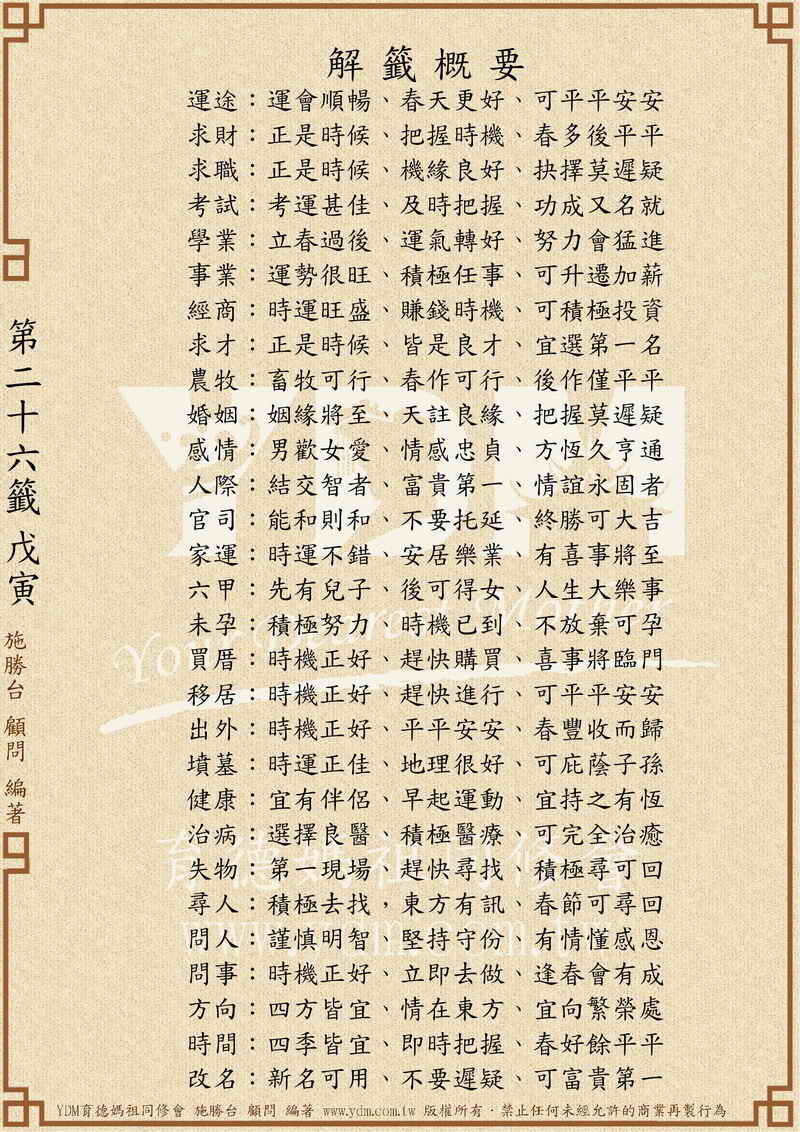 解籤概要
運途：運會順暢、春天更好、可平平安安
求財：正是時候、把握時機、春多後平平
求職：正是時候、機緣良好、抉擇莫遲疑
考試：考運甚佳、及時把握、功成又名就
學業：立春過後、運氣轉好、努力會猛進
事業：運勢很旺、積極任事、可升遷加薪
經商：時運旺盛、賺錢時機、可積極投資
求才：正是時候、皆是良才、宜選第一名
農牧：畜牧可行、春作可行、後作僅平平
婚姻：姻緣將至、天註良緣、把握莫遲疑
感情：男歡女愛、情感忠貞、方恆久亨通
人際：結交智者、富貴第一、情誼永固者
官司：能和則和、不要托延、終勝可大吉
家運：時運不錯、安居樂業、有喜事將至
六甲：先有兒子、後可得女、人生大樂事
未孕：積極努力、時機已到、不放棄可孕
買厝：時機正好、趕快購買、喜事將臨門
移居：時機正好、趕快進行、可平平安安
出外：時機正好、平平安安、春豐收而歸
墳墓：時運正佳、地理很好、可庇蔭子孫
健康：宜有伴侶、早起運動、宜持之有恆
治病：選擇良醫、積極醫療、可完全治癒
失物：第一現場、趕快尋找、積極尋可回
尋人：積極去找，東方有訊、春節可尋回
問人：謹慎明智、堅持守份、有情懂感恩
問事：時機正好、立即去做、逢春會有成
方向：四方皆宜、情在東方、宜向繁榮處
時間：四季皆宜、即時把握、春好餘平平
改名：新名可用、不要遲疑、可富貴第一
第二十六籤 戊寅
施勝台 顧問 編著
YDM
Your Dearest Mother
育德媽祖同修會
www.ydm.com.tw
YDM育德媽祖同修會 施勝台 顧問 編著 www.ydm.com.tw 版權所有．禁止任何未經允許的商業再製行為